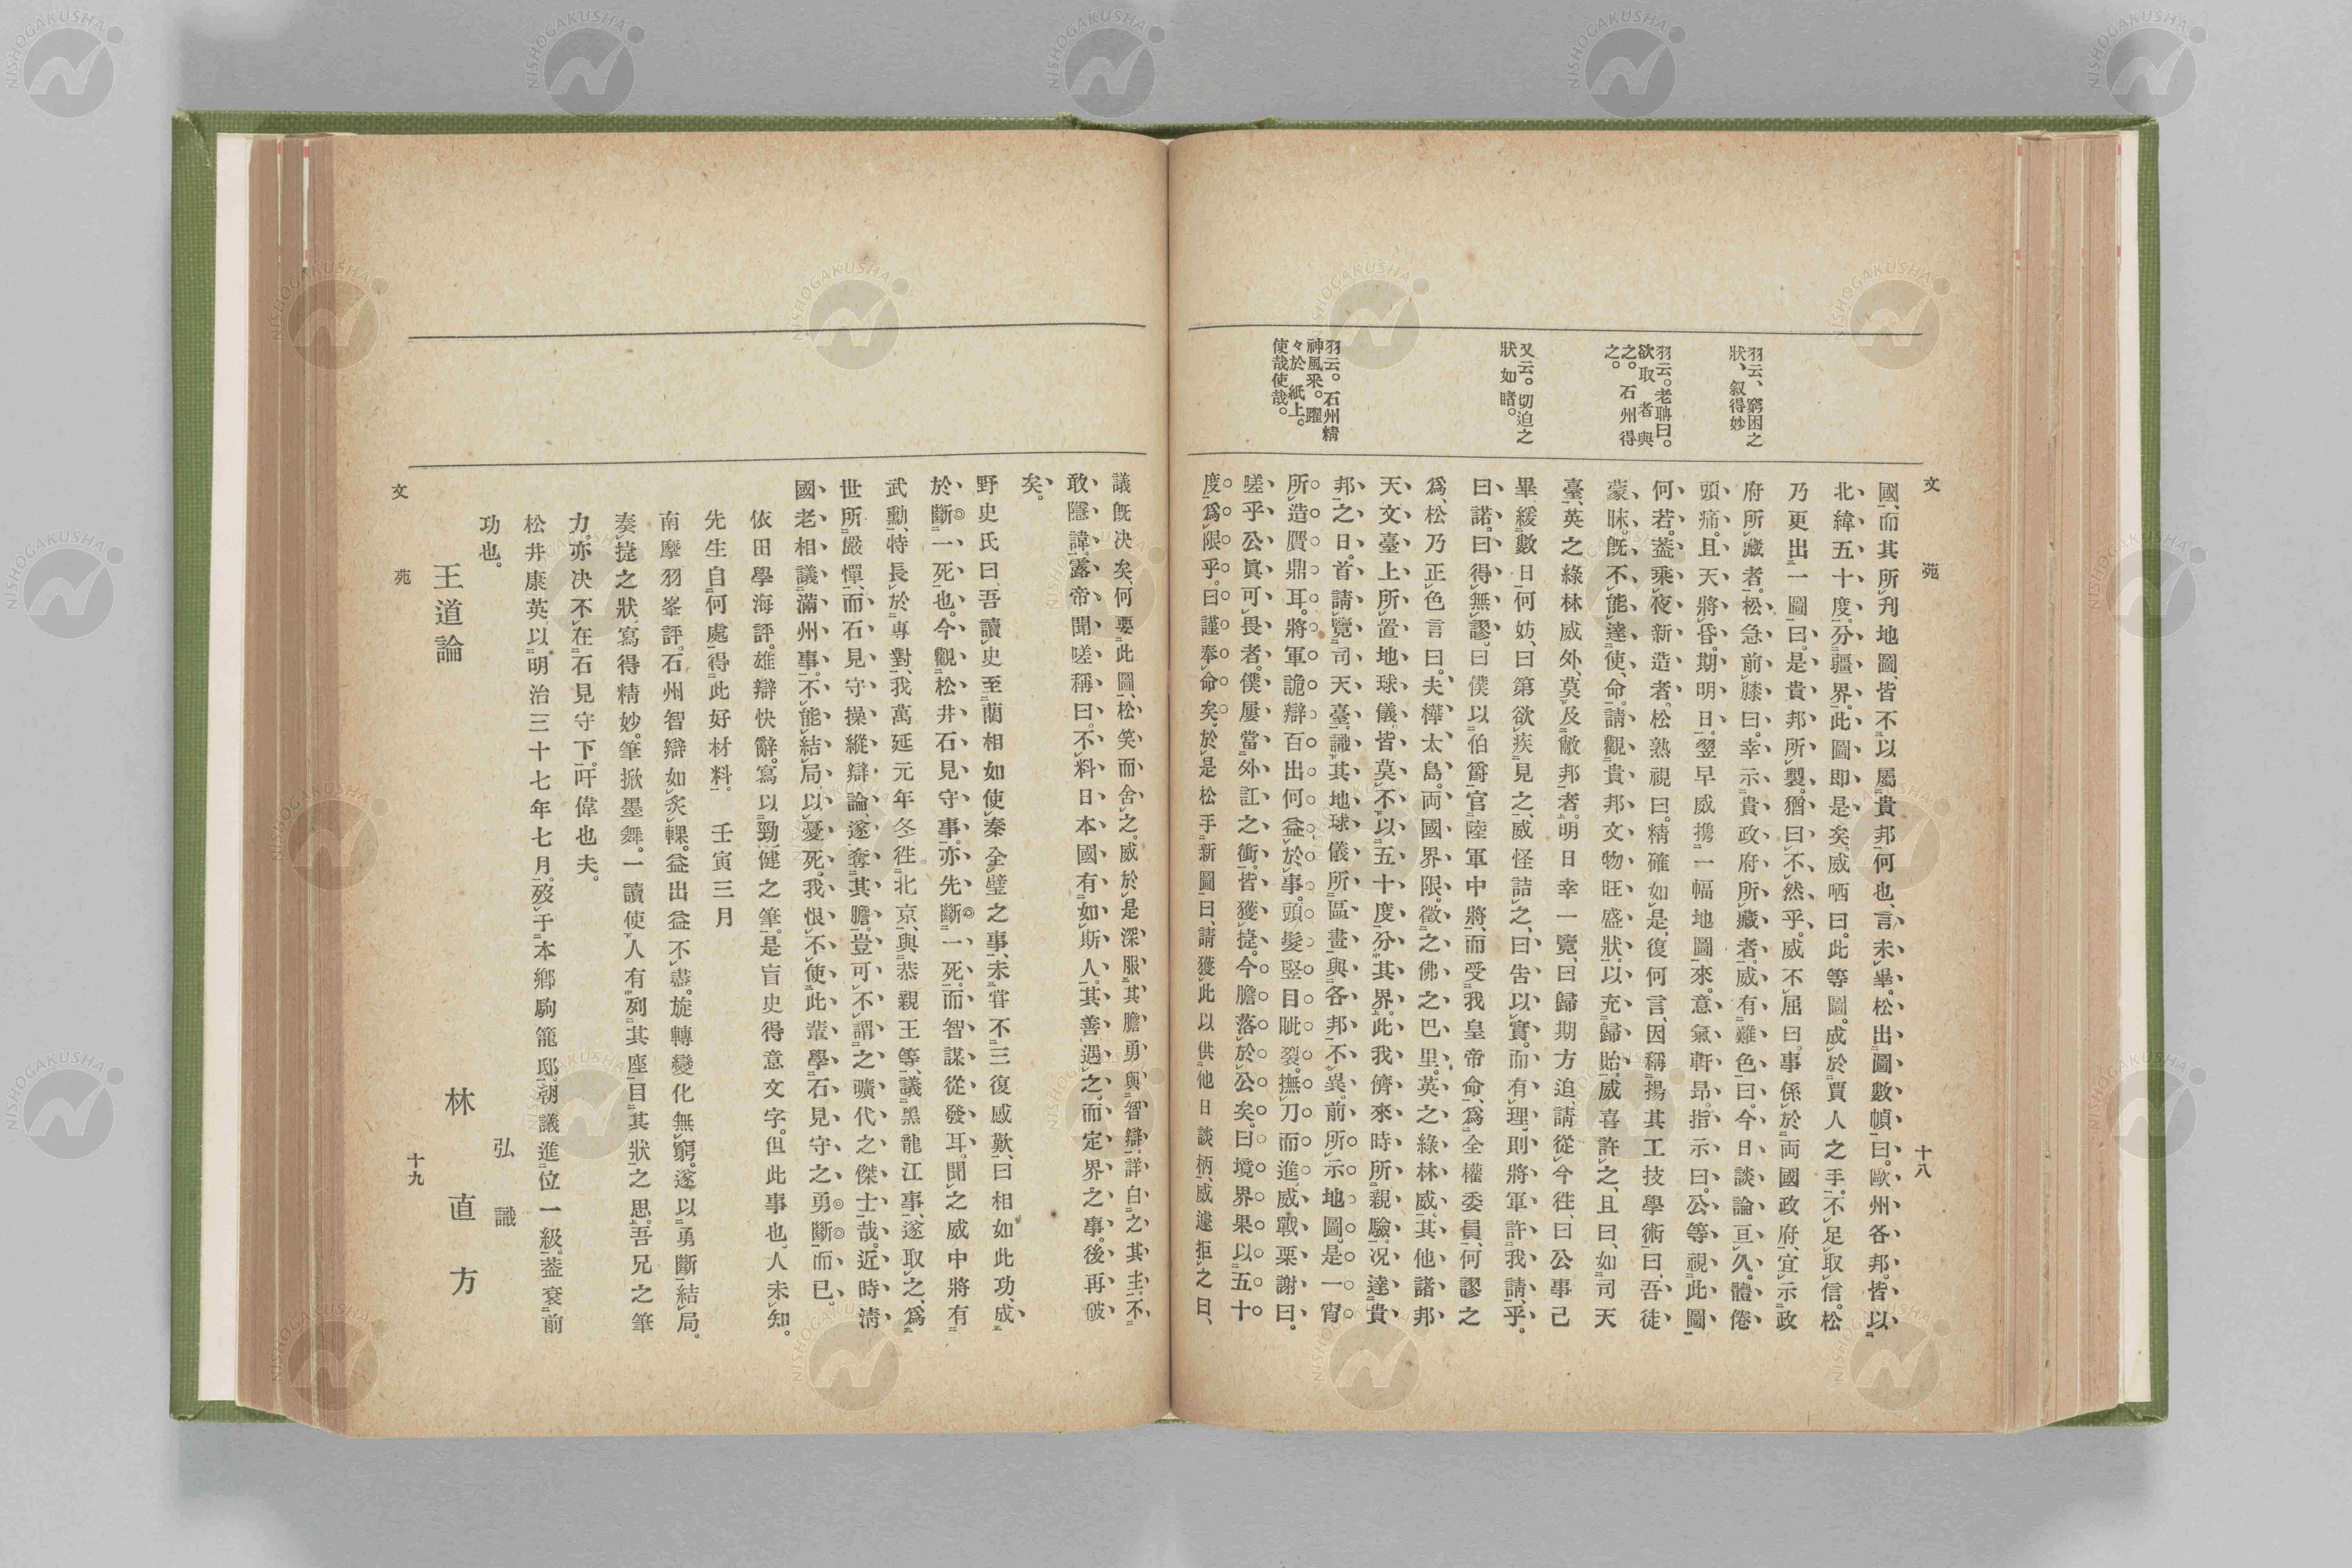 文苑
十八
羽云、窮困之
狀、叙得妙
羽云。老聃曰。
欲取者與
之。石州得
之。
又云。切迫之
狀如睹。
羽云。石州精
神風釆。躍
々於紙上。
使哉使哉。
國、而其所刋地圖、皆不以屬貴邦何也、言未畢。松出圖數幀曰。歐州各邦。皆以
北緯五十度。分疆界。此圖即是矣。威哂曰。此等圖。成於賈人之手。不足取信。松
乃更出一圖曰。是貴邦所製。猶曰不然乎。威不屈曰。事係於両國政府、宜示政
府所藏者。松急前膝曰。幸示貴政府所藏者。威有難色曰。今日談論亘久。體倦
頭痛。且天將昏。期明日。翌早威携一幅地圖來。意氣軒昂。指示曰。公等視此圖
何若。葢乘夜新造者。松熟視曰。精確如是、復何言、因稱揚其工技學術曰、吾徒
蒙昧。旣不能達使命。請觀貴邦文物旺盛狀。以充歸貽。威喜許之、且曰、如司天
臺、英之綠林威外、莫及敝邦者。明日幸一覽、曰歸期方迫、請從今徃、曰公事已
畢、緩數日何妨、曰第欲疾見之、威怪詰之、曰吿以實。而有理、則將軍許我請乎。
曰、諾。曰得無謬。曰僕以伯爵官陸軍中將、而受我皇帝命、爲全權委員、何謬之
爲、松乃正色言曰。夫樺太島。両國界限。徵之佛之巴里。英之綠林威。其他諸邦
天文臺上所置地球儀、皆莫不以五十度分其界。此我儕來時所親驗。况達貴
邦之日。首請覽司天臺。識其地球儀所區畫與各邦不異。前所示地圖。是一宵
所造贋鼎耳。將軍詭辯百出何益於事。頭髮竪目眦裂。撫刀而進。威戰栗謝曰。
嗟乎公眞可畏者。僕屢當外訌之衝。皆獲捷。今膽落於公矣。曰境界果以五十
度爲限乎。曰謹奉命矣。於是松手新圖曰、請獲此以供他日談柄、威遽拒之曰、
議旣决矣、何要此圖、松笑而舍之。威於是深服其膽勇與智辯。詳白之其主、不
敢隱諱。露帝聞嗟稱曰。不料日本國有如斯人。其善遇之。而定界之事。後再破
矣。
野史氏曰、吾讀史至藺相如使秦全璧之事、未甞不三復感歎、曰相如此功、成
於斷一死也。今觀松井石見守事。亦先斷一死。而智謀從發耳。聞之威中將有
武勳、特長於專對、我萬延元年冬、徃北京、與恭親王等、議黑龍江事、遂取之、爲
世所嚴憚、而石見守操縱辯論、遂奪其膽。豈可不謂之曠代之傑士哉。近時淸
國老相議滿州事。不能結局。以憂死。我恨不使此輩學石見守之勇斷而已。
依田學海評。雄辯快辭。寫以勁健之筆。是盲史得意文字。但此事也、人未知。
先生自何處得此好材料。　壬寅三月
南摩羽峯評。石州智辯如炙輠。益出益不盡。旋轉變化無窮。遂以勇斷結局。
奏捷之狀、寫得精妙。筆掀墨舞。一讀使人有列其座目其狀之思。吾兄之筆
力。亦决不在石見守下。吁偉也夫。
松井康英、以明治三十七年七月。歿于本鄕駒籠邸。朝議進位一級。葢襃前
功也。
弘識
王道論
林直方
文苑
十九